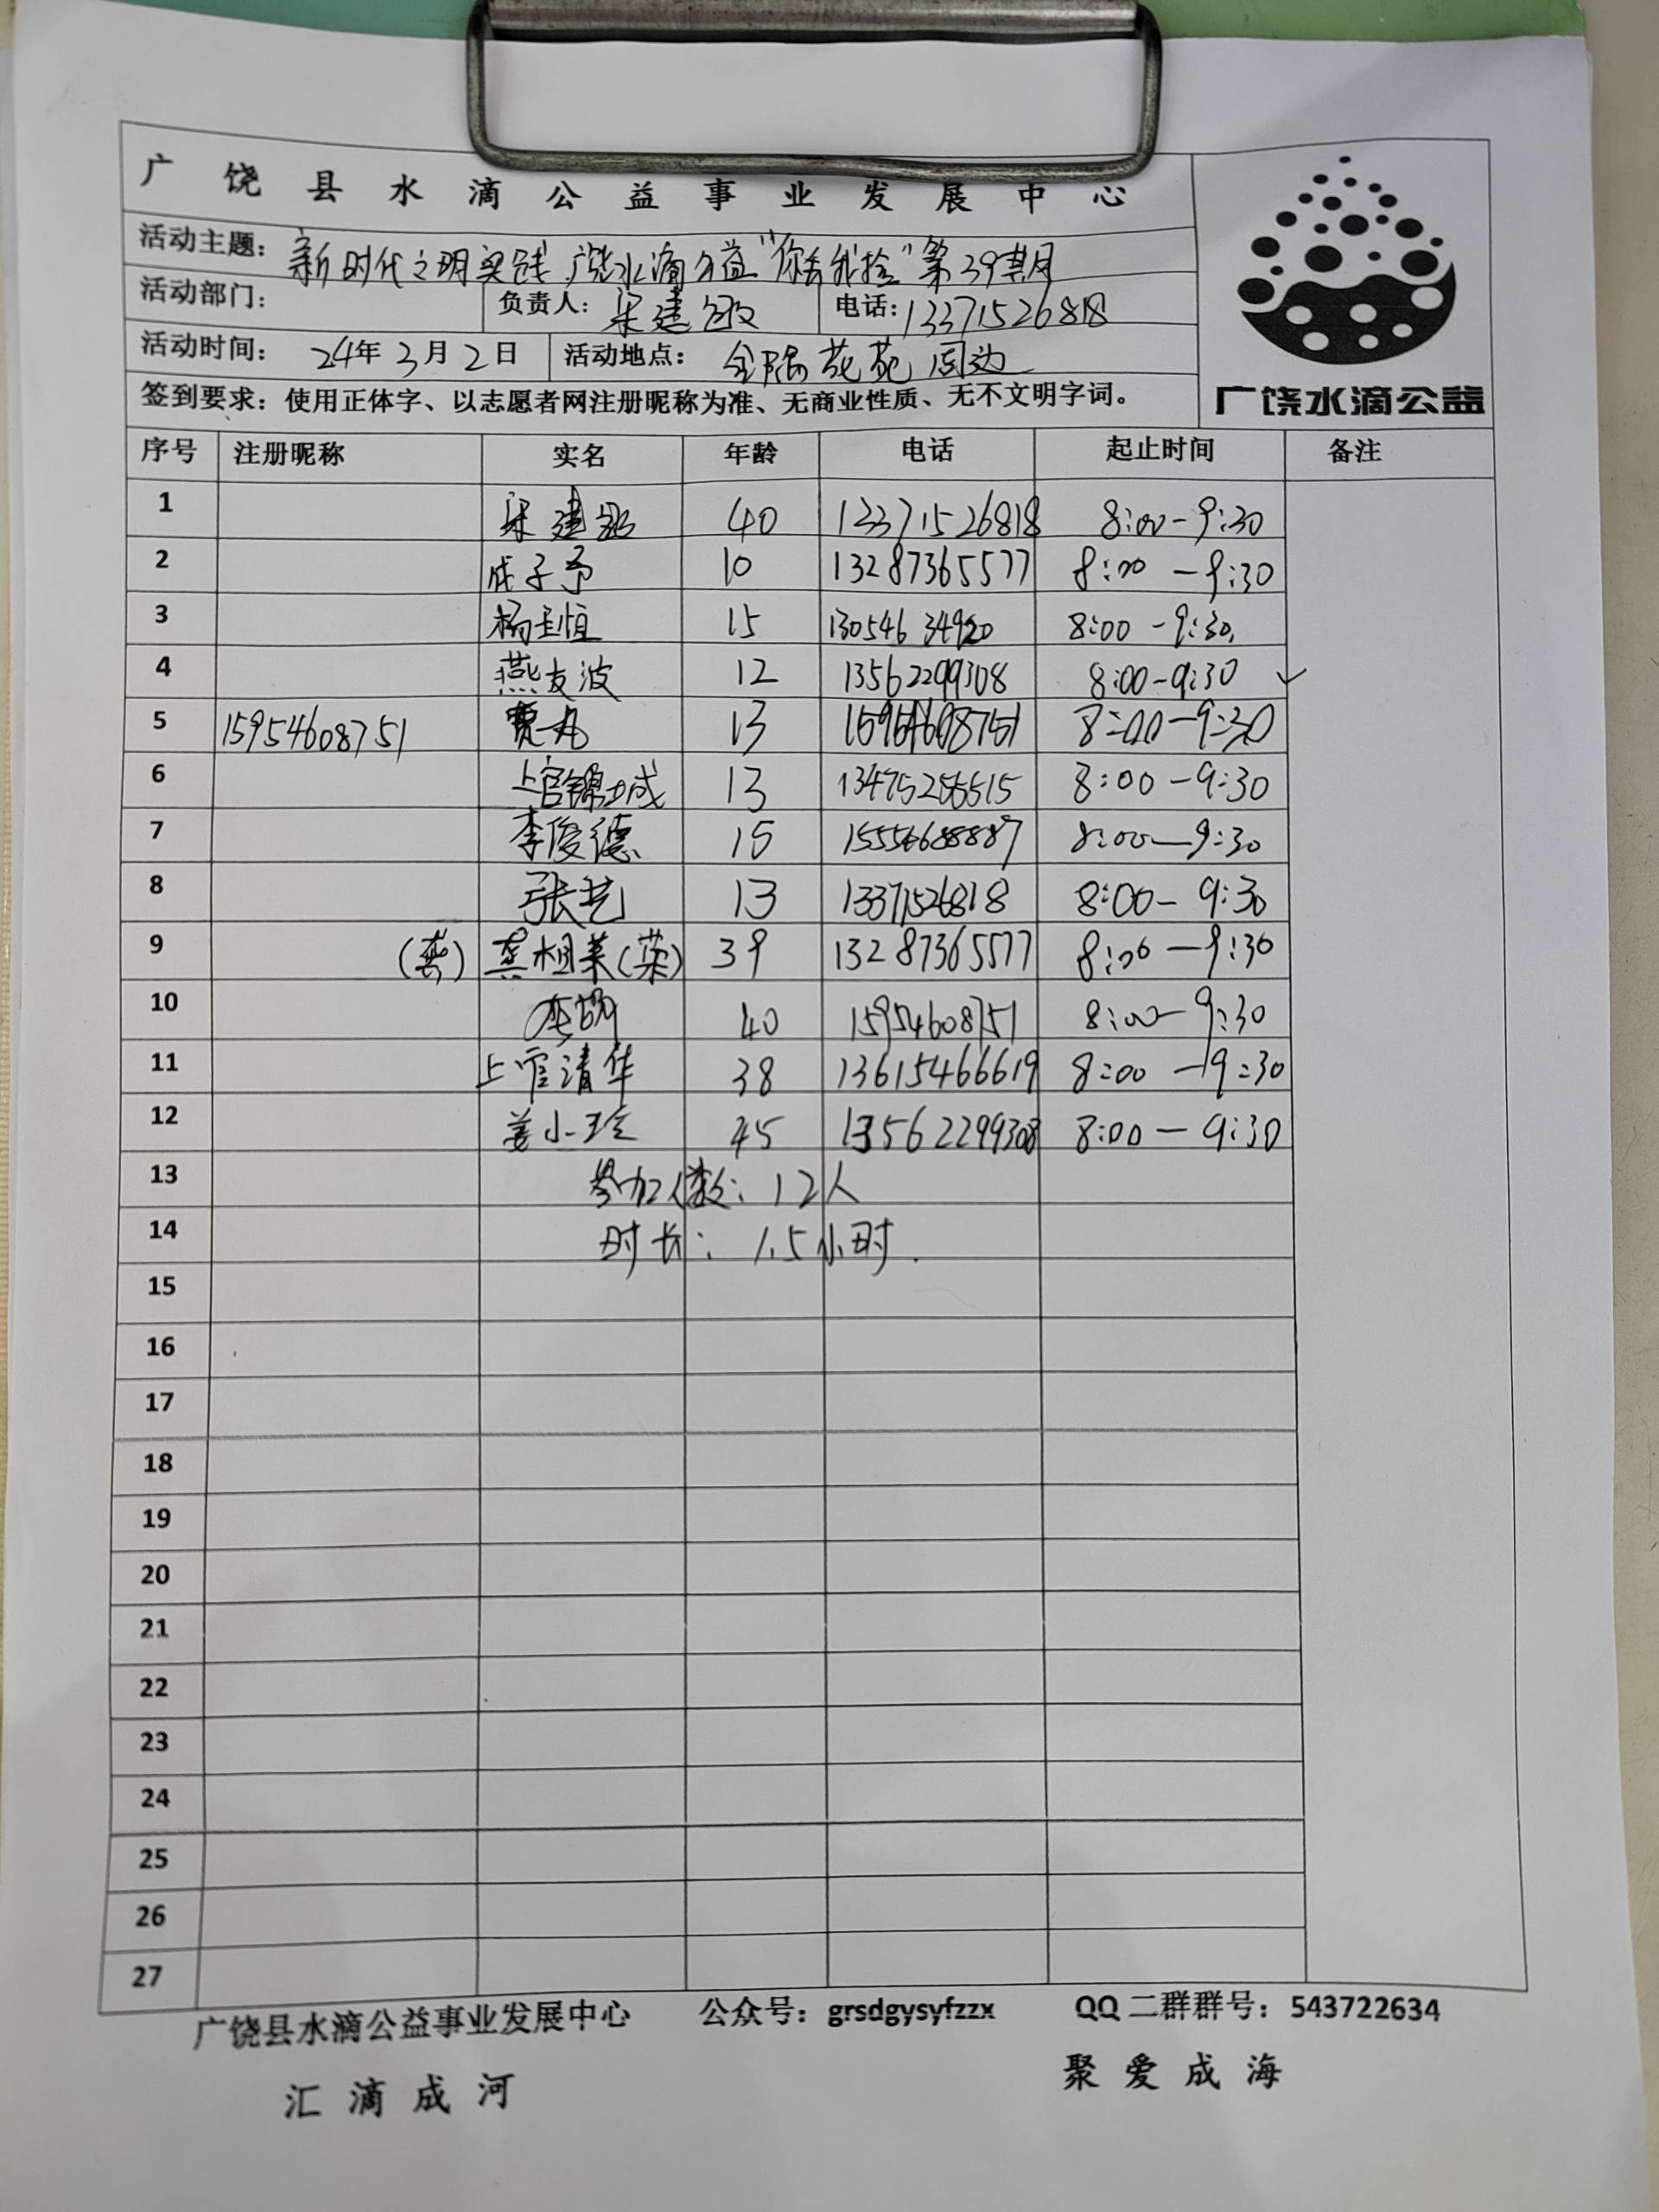 广饶县水滴公益事业发展中心
活动主题：新时代文明实践 广饶水滴公益"你丢我捡"第39期
活动部门： 负责人：梁建敏 电话：13371526818
活动时间：24年3月2日 活动地点：花苑周边
签到要求：使用正体字、以志愿者网注册昵称为准、无商业性质、无不文明字词。
广饶水滴公益
序号 注册昵称 实名 年龄 电话 起止时间 备注
1 梁建敏 40 13371526818 8:00-9:30
2 成子予 10 13287365577 8:00-9:30
3 杨 恒 15 8:00-9:30
4 燕友波 12 13562299308 8:00-9:30 ✓
5 15954608751 贾 13 15954608751 8:00-9:30
6 上官锦城 13 8:00-9:30
7 李俊德 15 8:00-9:30
8 张艺 13 13371526818 8:00-9:30
9 (龚) 龚相荣(荣) 39 13287365577 8:00-9:30
10 40 15954608751 8:00-9:30
11 上官清华 38 13615466619 8:00-9:30
12 姜小玲 45 13562299308 8:00-9:30
13 参加人数：12人
14 时长：1.5小时.
15
16
17
18
19
20
21
22
23
24
25
26
27
广饶县水滴公益事业发展中心 公众号：grsdgysyfzzx QQ 二群群号：543722634
汇滴成河 聚爱成海